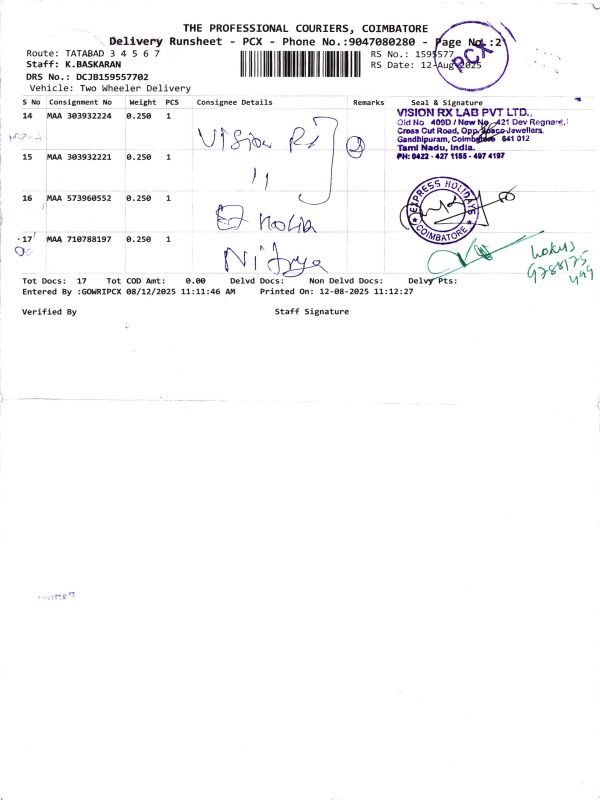 THE PROFESSIONAL COURIERS, COIMBATORE
Delivery Runsheet - PCX - Phone No.:9047080280 - Page No.:2
Route: TATABAD 3 4 5 6 7
RS No.: 1595577
PCX
Staff: K.BASKARAN
RS Date: 12-Aug-2025
DRS No.: DCJB159557702
Vehicle: Two Wheeler Delivery
S No Consignment No Weight PCS Consignee Details Remarks Seal & Signature
14 MAA 303932224 0.250 1
Vision Rx
VISION RX LAB PVT LTD.,
Old No 409D / New No 421 Dev Regnant,
Cross Cut Road, Opp. Josco Jewellers,
Gandhipuram, Coimbatore 641 012
Tamil Nadu, India.
PH: 0422 - 427 1155 - 497 4197
15 MAA 303932221 0.250 1
11
16 MAA 573960552 0.250 1
EXPRESS HOLIDAYS
COIMBATORE
17 MAA 710788197 0.250 1
Nitrya
9788175
499
Tot Docs: 17 Tot COD Amt: 0.00 Delvd Docs: Non Delvd Docs: Delvy Pts:
Entered By :GOWRIPCX 08/12/2025 11:11:46 AM Printed On: 12-08-2025 11:12:27
Verified By Staff Signature